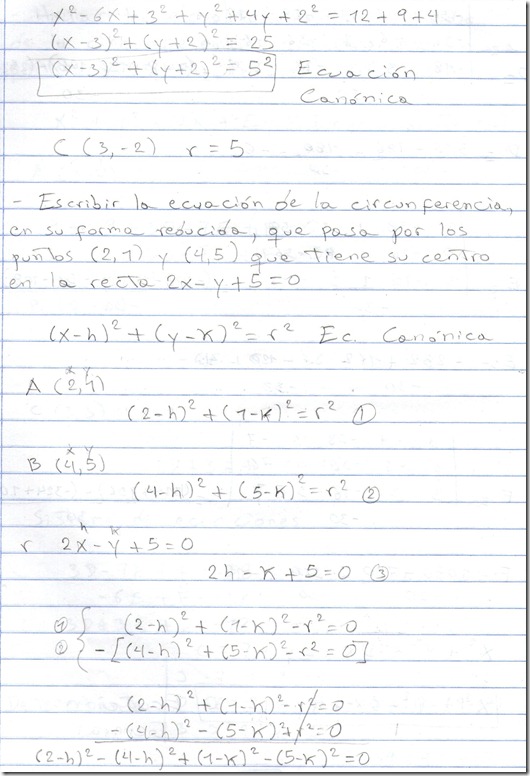 x² - 6x + 3² + y² + 4y + 2² = 12 + 9 + 4
(x-3)² + (y+2)² = 25
(x-3)² + (y+2)² = 5² Ecuación
Canónica
C (3, -2) r = 5
- Escribir la ecuación de la circunferencia,
en su forma reducida, que pasa por los
puntos (2,1) y (4,5) que tiene su centro
en la recta 2x - y + 5 = 0
(x-h)² + (y-k)² = r² Ec. Canónica
x y
A (2,1)
(2-h)² + (1-k)² = r² ①
x y
B (4,5)
(4-h)² + (5-k)² = r² ②
h k
r 2x - y + 5 = 0
2h - k + 5 = 0 ③
① { (2-h)² + (1-k)² - r² = 0
② - [(4-h)² + (5-k)² - r² = 0]
(2-h)² + (1-k)² - r² = 0
-(4-h)² - (5-k)² + r² = 0
(2-h)² - (4-h)² + (1-k)² - (5-k)² = 0